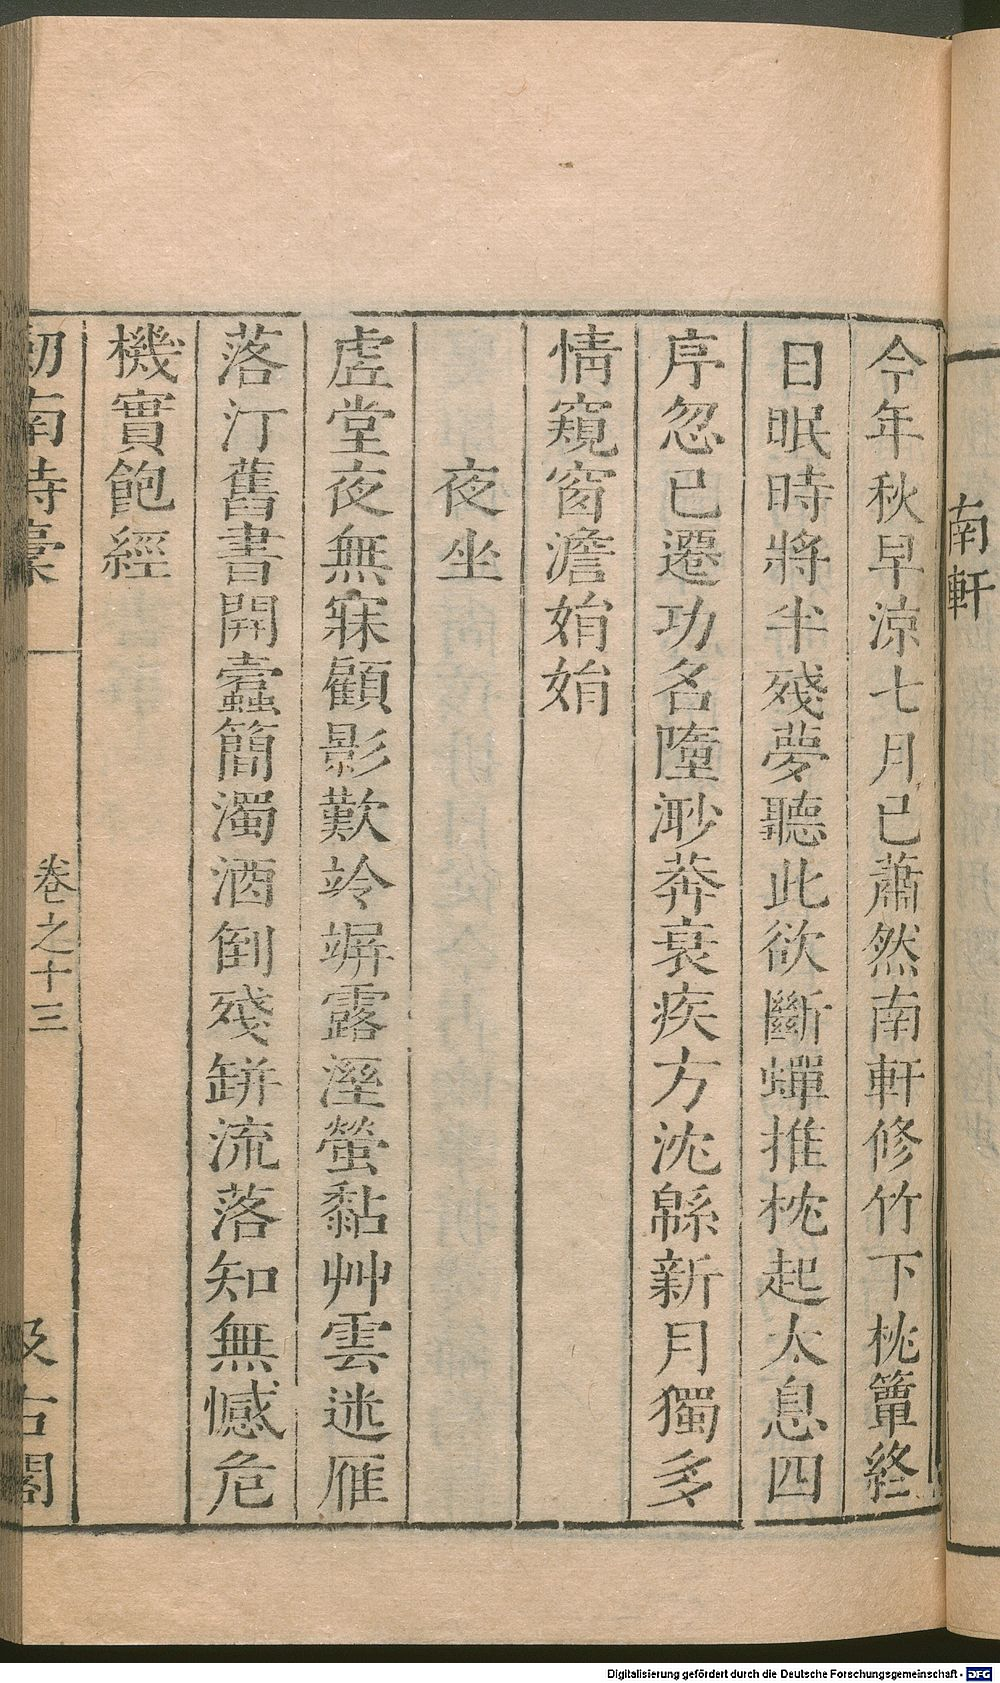 南軒
今年秋早涼七月已蕭然南軒修竹下桃簟終
日眠時將半殘夢聽此欲斷蟬推枕起太息四
序忽已遷功名墮渺莽衰疾方沈緜新月獨多
情窺窗澹娟娟
夜坐
虛堂夜無寐顧影歎竛竮露溼螢黏艸雲迷雁
落汀舊書開蠹簡濁酒倒殘缾流落知無憾危
機實飽經
劎南詩稾 卷之十三 汲古閣
Digitalisierung gefördert durch die Deutsche Forschungsgemeinschaft - DFG